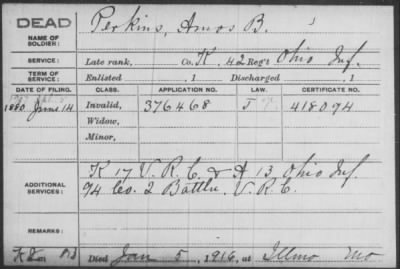 DEAD
NAME OF SOLDIER: Perkins, Amos B.
SERVICE: Late rank, Co. K, 42 Reg't Ohio Inf.
TERM OF SERVICE: Enlisted , 1 Discharged , 1
DATE OF FILING. CLASS. APPLICATION NO. LAW. CERTIFICATE NO.
1880 June 14 Invalid, 376468 418094
Widow,
Minor,
ADDITIONAL SERVICES: K 17 V.R.C. & A 13 Ohio Inf.
94 Co. 2 Battln. V.R.C.
REMARKS:
Died Jan 5, 1916, at Illmo Mo